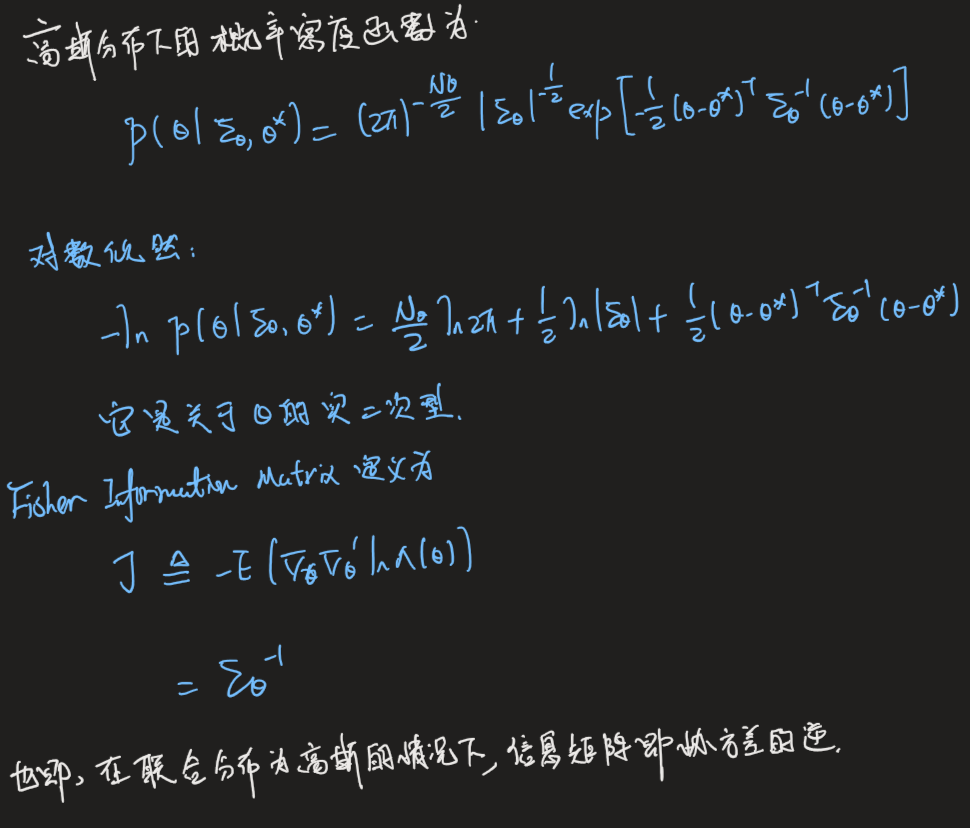 高斯分布下的概率密度函数为.
p(θ|Σ_θ, θ*) = (2π)^{-Nθ/2} |Σ_θ|^{-1/2} exp[-1/2 (θ-θ*)^T Σ_θ^{-1} (θ-θ*)]
对数似然:
-ln p(θ|Σ_θ, θ*) = Nθ/2 ln2π + 1/2 ln|Σ_θ| + 1/2 (θ-θ*)^T Σ_θ^{-1} (θ-θ*)
它是关于θ的实二次型.
Fisher Information Matrix 定义为
J ≜ -E(∇_θ∇_θ' lnΛ(θ))
= Σ_θ^{-1}
也即, 在联合分布为高斯的情况下, 信息矩阵即协方差的逆.